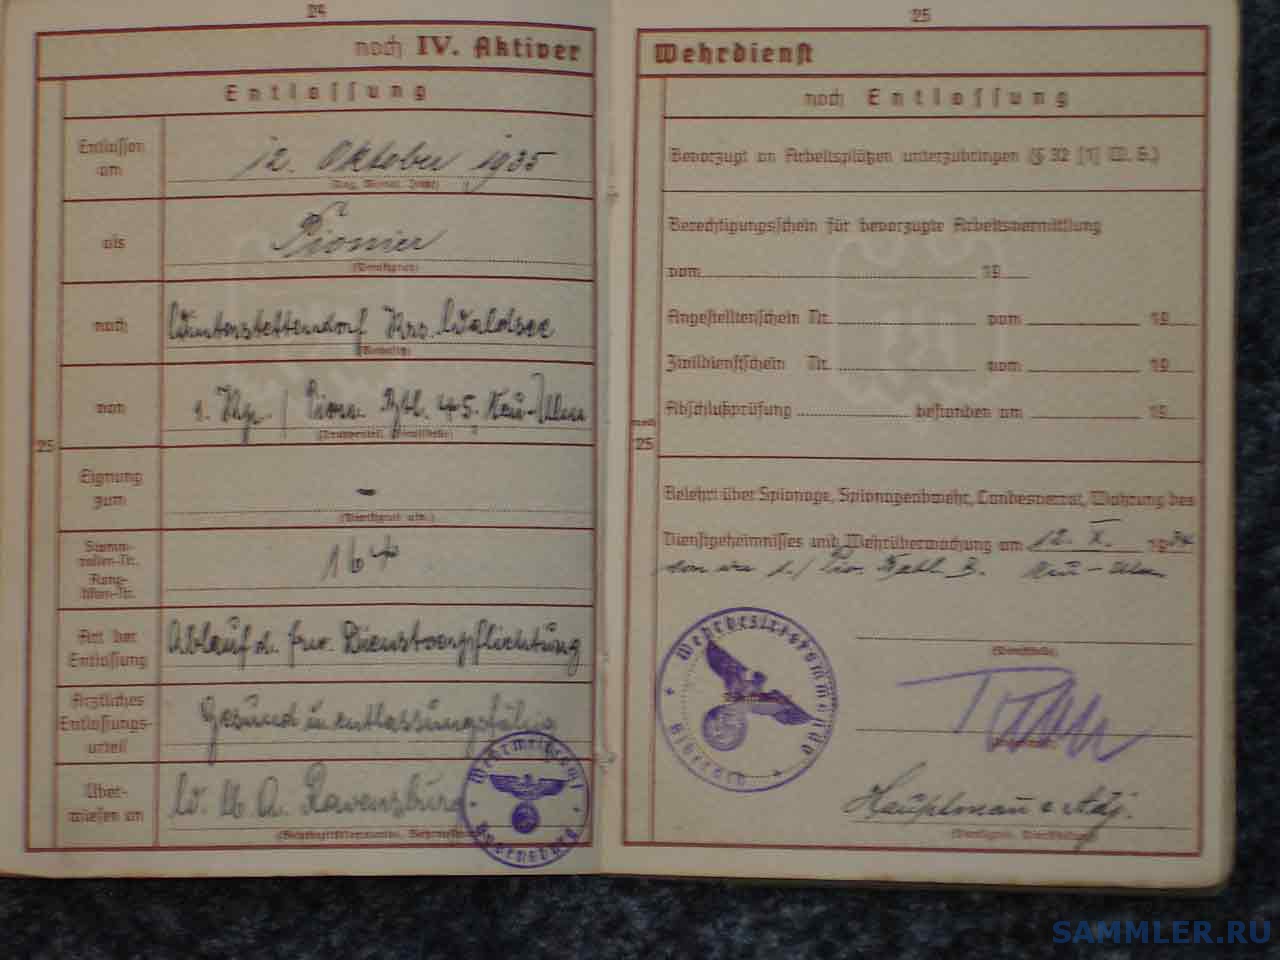 24
noch IV. Aktiver
Entlassung
Entlassen am
12. Oktober 1935
(Tag, Monat, Jahr)
als
Pionier
(Dienstgrad)
nach
Winterstettendorf Krs. Waldsee
von
1. Kp. / Pion. Btl. 45. Neu-Ulm
(Truppenteil, Dienststelle)
25
Eignung zum
-
(Dienstgrad usw.)
Stamm-
rollen-Nr.
Rang-
listen-Nr.
164
Art der
Entlassung
Ablauf d. frw. Dienstverpflichtung
Ärztliches
Entlassungs-
urteil
Gesund u. entlassungsfähig
Über-
wiesen an
W. M. A. Ravensburg
(Wehrbezirkskommando, Wehrmeldeamt)
Wehrmeldeamt
Ravensburg
25
Wehrdienst
noch Entlassung
Bevorzugt an Arbeitsplätzen unterzubringen (§ 32 [1] W. G.)
Berechtigungsschein für bevorzugte Arbeitsvermittlung
vom 19
Angestelltenschein Nr. vom 19
Zivildienstschein Nr. vom 19
Abschlußprüfung bestanden am 19
noch
25
Belehrt über Spionage, Spionageabwehr, Landesverrat, Wahrung des
Dienstgeheimnisses und Wehrüberwachung am 12. X. 1934
von der 1./ Pio. Batl. B. Neu-Ulm
(Dienststelle)
Wehrbezirkskommando
Biberach
Hauptmann u. Adj.
(Dienstgrad, Dienststellung)
SAMMLER.RU